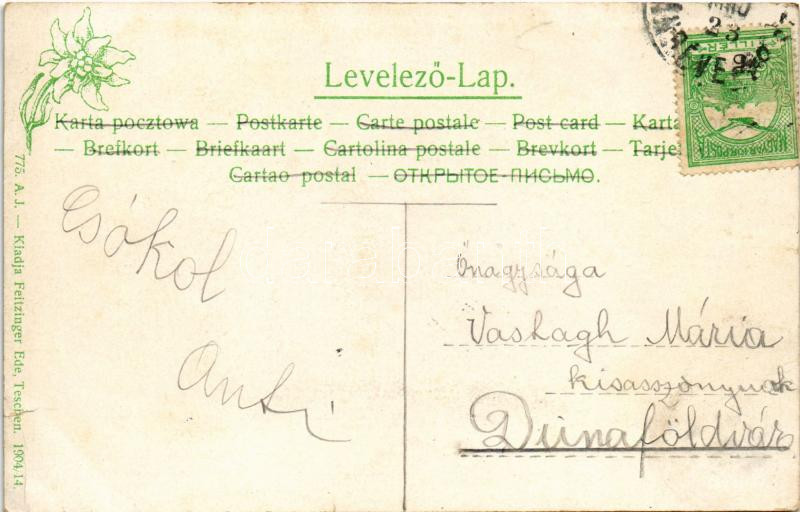 Levelező-Lap.
Karta pocztowa — Postkarte — Carte postale — Post card — Karta
— Brefkort — Briefkaart — Cartolina postale — Brevkort — Tarje
Cartao postal — ОТКРЫТОЕ-ПИСЬМО.
775. A. J. — Kiadja Feitzinger Ede, Teschen. 1904/14.
Csókol
Anti
Őnagysága
Vastagh Mária
kisasszonynak
Dunaföldvár
MAGYAR KIR. POSTA
FILLÉR
23